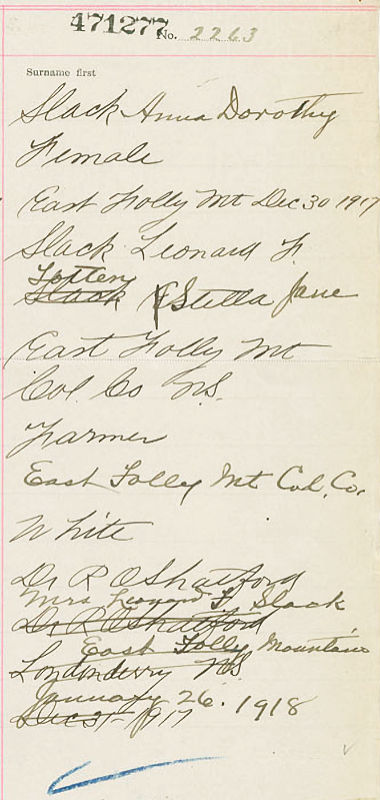 471277 No. 2263
Surname first
Slack Anna Dorothy
Female
East Folly Mt Dec 30 1917
Slack Leonard F.
Totten
Slack Stella Jane
East Folly Mt
Col. Co N.S.
Farmer
East Folly Mt Col. Co.
White
Dr R O Shatford
Mrs Leonard F. Slack
Dr R O Shatford
East Folly Mountain
Londonderry NS
January 26. 1918
Dec 31 - 1917